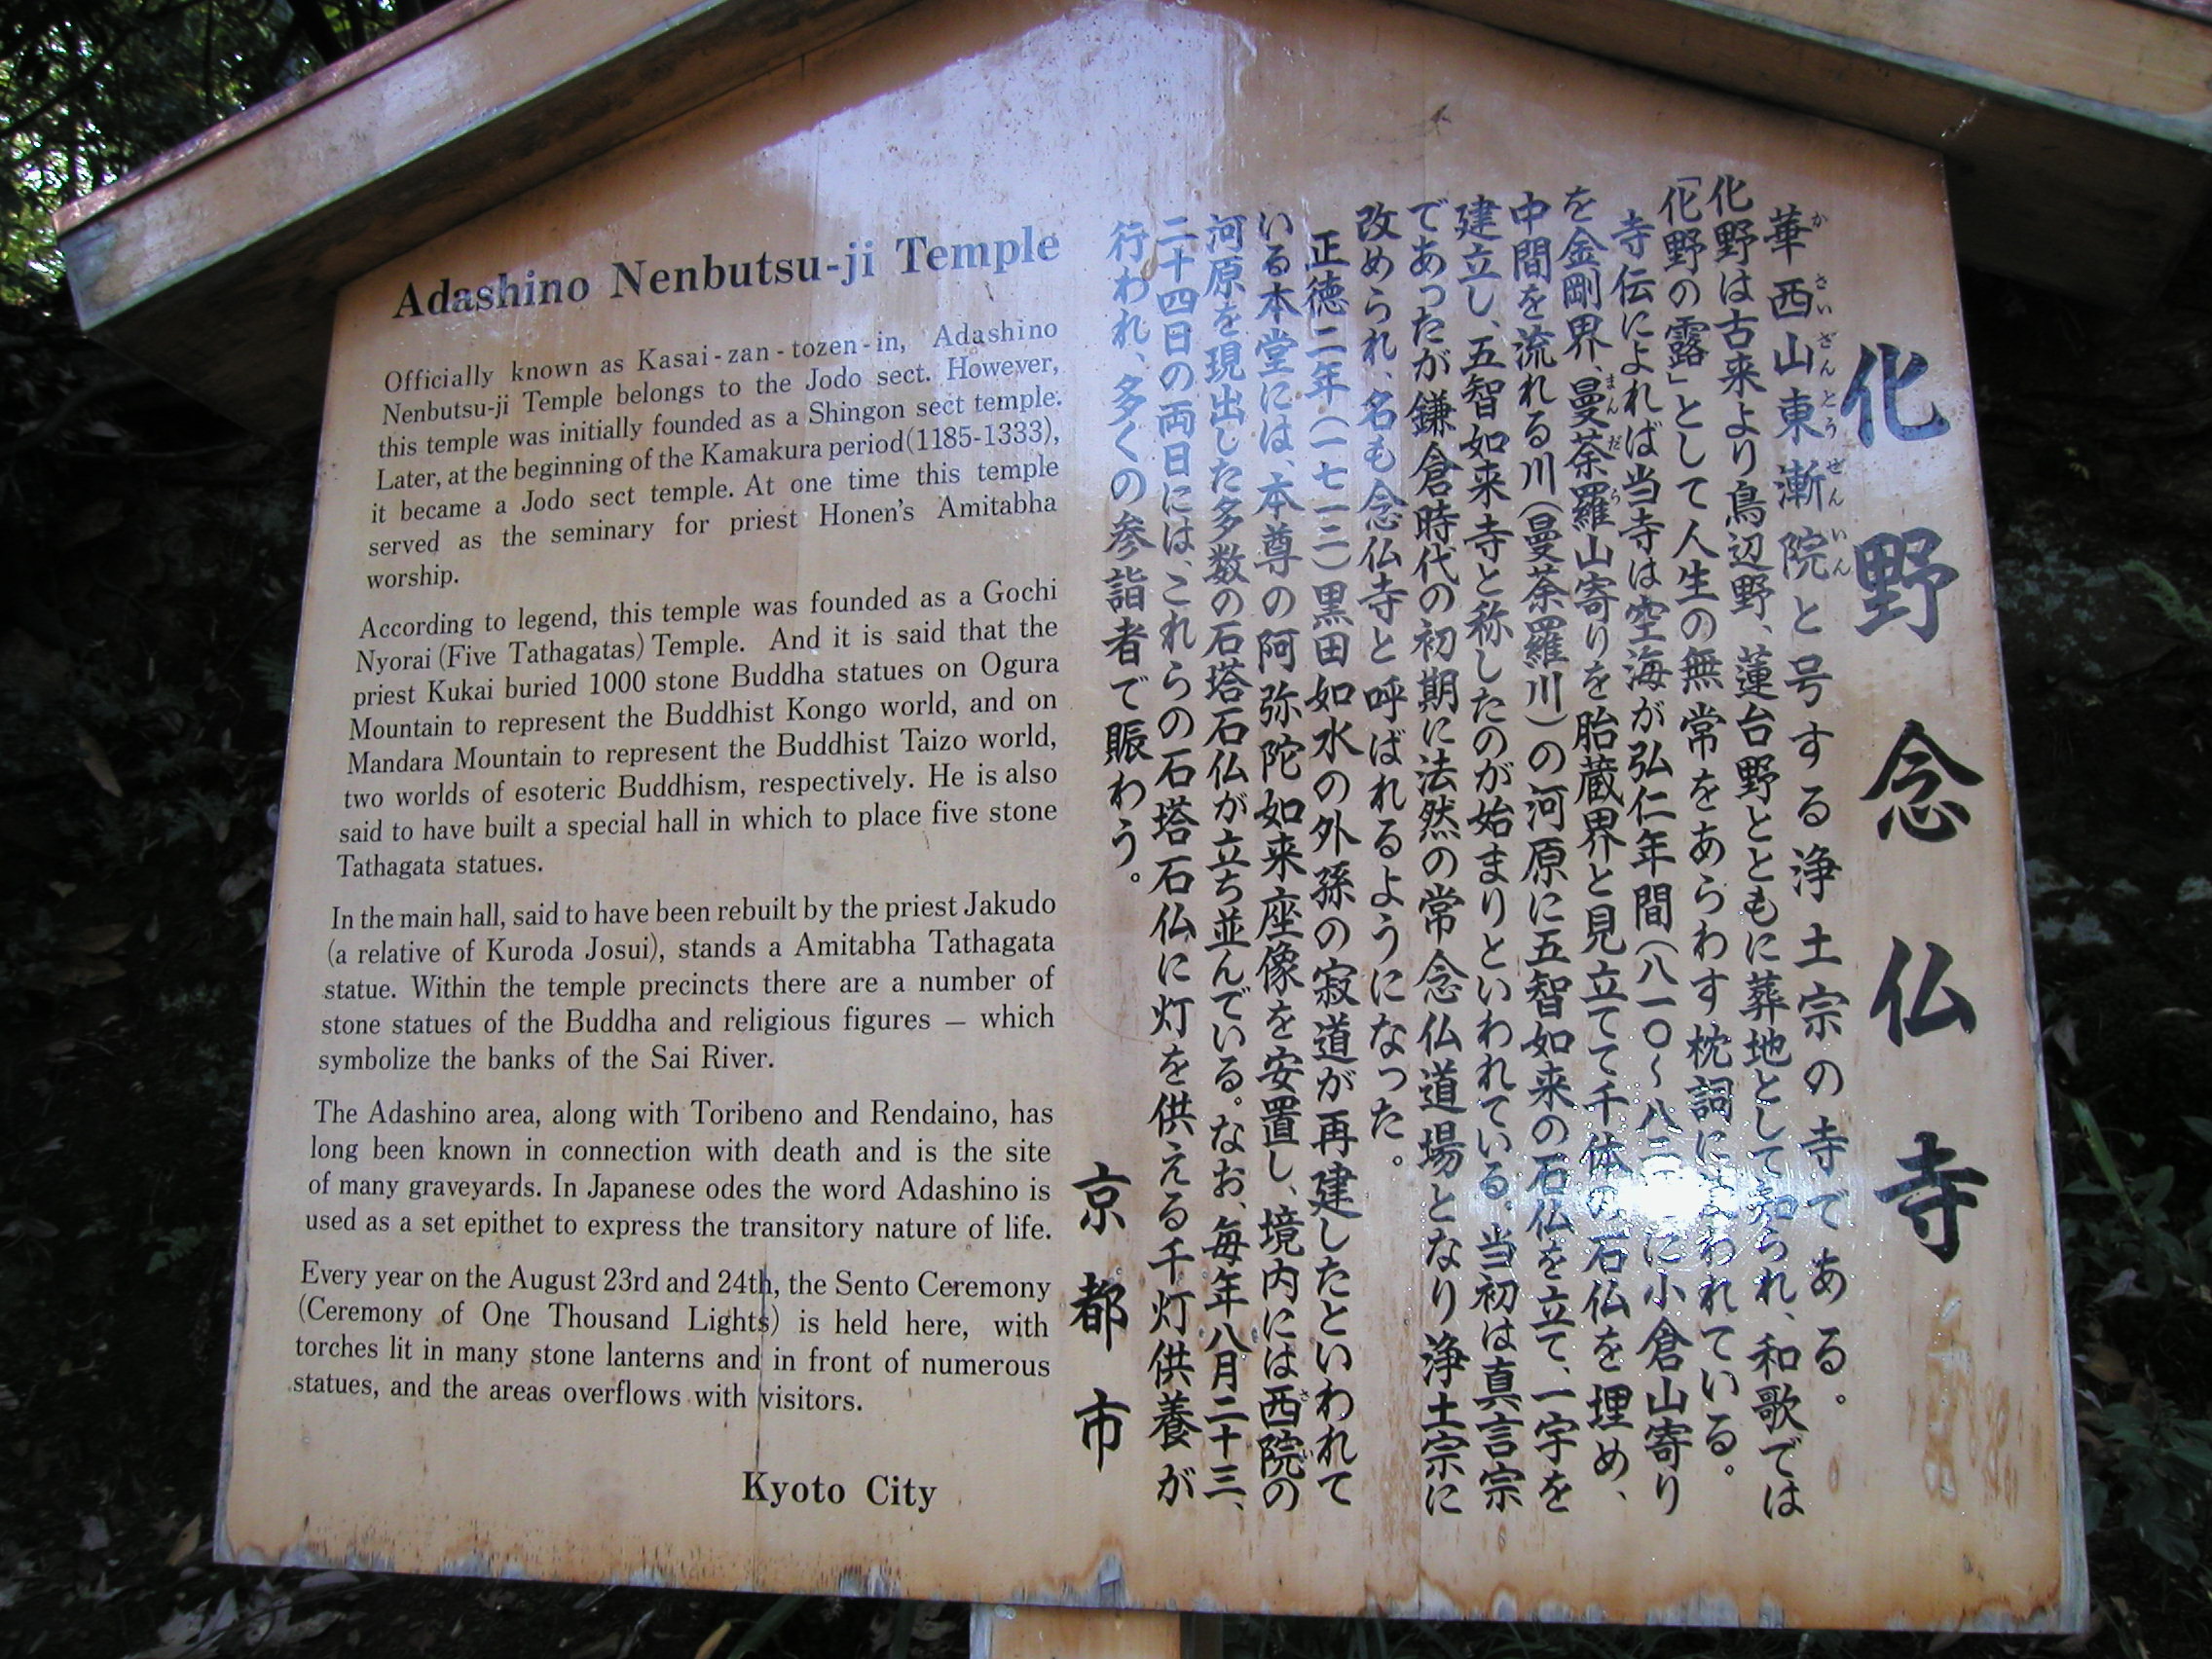 Adashino Nenbutsu-ji Temple
Officially known as Kasai-zan-tozen-in, Adashino
Nenbutsu-ji Temple belongs to the Jodo sect. However,
this temple was initially founded as a Shingon sect temple.
Later, at the beginning of the Kamakura period(1185-1333),
it became a Jodo sect temple. At one time this temple
served as the seminary for priest Honen's Amitabha
worship.
According to legend, this temple was founded as a Gochi
Nyorai (Five Tathagatas) Temple. And it is said that the
priest Kukai buried 1000 stone Buddha statues on Ogura
Mountain to represent the Buddhist Kongo world, and on
Mandara Mountain to represent the Buddhist Taizo world,
two worlds of esoteric Buddhism, respectively. He is also
said to have built a special hall in which to place five stone
Tathagata statues.
In the main hall, said to have been rebuilt by the priest Jakudo
(a relative of Kuroda Josui), stands a Amitabha Tathagata
statue. Within the temple precincts there are a number of
stone statues of the Buddha and religious figures – which
symbolize the banks of the Sai River.
The Adashino area, along with Toribeno and Rendaino, has
long been known in connection with death and is the site
of many graveyards. In Japanese odes the word Adashino is
used as a set epithet to express the transitory nature of life.
Every year on the August 23rd and 24th, the Sento Ceremony
(Ceremony of One Thousand Lights) is held here, with
torches lit in many stone lanterns and in front of numerous
statues, and the areas overflows with visitors.
Kyoto City
化野念仏寺
華西山東漸院と号する浄土宗の寺である。
化野は古来より鳥辺野、蓮台野とともに葬地として知られ、和歌では
「化野の露」として人生の無常をあらわす枕詞に使われている。
寺伝によれば当寺は空海が弘仁年間（八一〇〜八二 に小倉山寄り
を金剛界、曼荼羅山寄りを胎蔵界と見立てて千体の石仏を埋め、
中間を流れる川（曼荼羅川）の河原に五智如来の石仏を立て、一宇を
建立し、五智如来寺と称したのが始まりといわれている。当初は真言宗
であったが鎌倉時代の初期に法然の常念仏道場となり浄土宗に
改められ、名も念仏寺と呼ばれるようになった。
正徳二年（一七一二）黒田如水の外孫の寂道が再建したといわれて
いる本堂には、本尊の阿弥陀如来座像を安置し、境内には西院の
河原を現出した多数の石塔石仏が立ち並んでいる。なお、毎年八月二十三、
二十四日の両日には、これらの石塔石仏に灯を供える千灯供養が
行われ、多くの参詣者で賑わう。
京都市